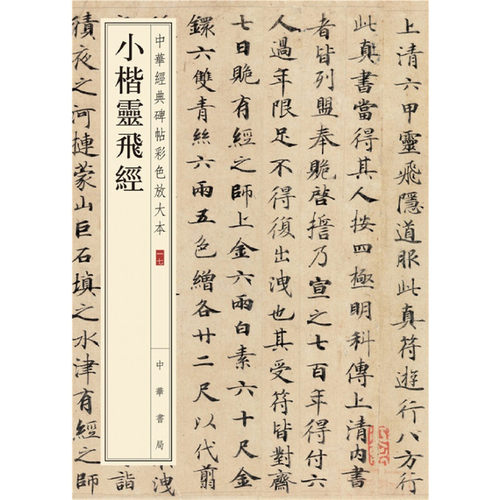 小楷靈飛經
中華經典碑帖彩色放大本
一七
中華書局
上清六甲靈飛隱道服此真符遊行八方行
此真書當得其人按四極明科傳上清內書
者皆列盟奉貺啓擔乃宣之七百年得付六
人過年限足不得復出洩也其受符皆對齋
七日貺有經之師上金六兩白素六十尺金
鐶六雙青絲六兩五色繒各廿二尺以代翦
詣
積夜之河摙蒙山巨石填之水津有經之師